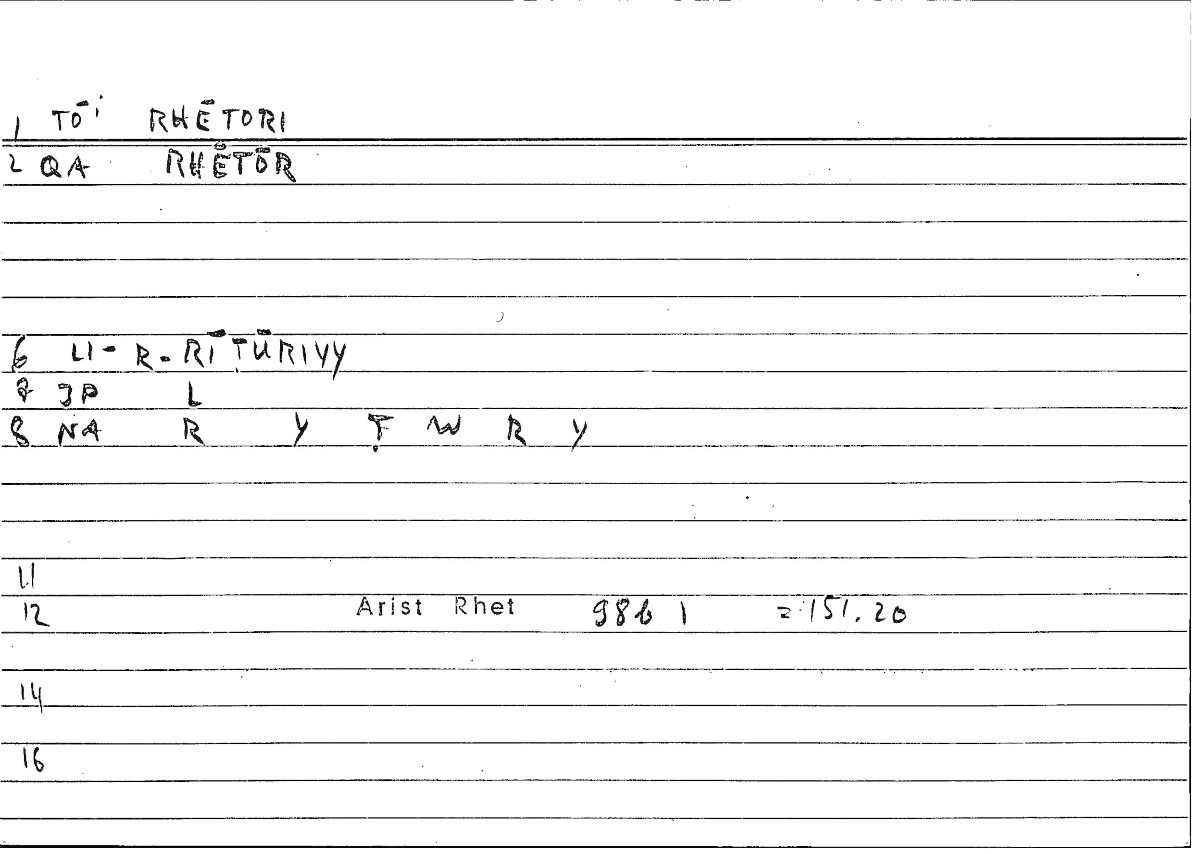 1 TŌⁱ RHĒTORI
2 QA RHĒTŌR
6 LI-R-RĪṬŪRIYY
7 JP L
8 NA R Y Ṭ W R Y
11
12 Arist Rhet 98b 1 = 151.20
14
16